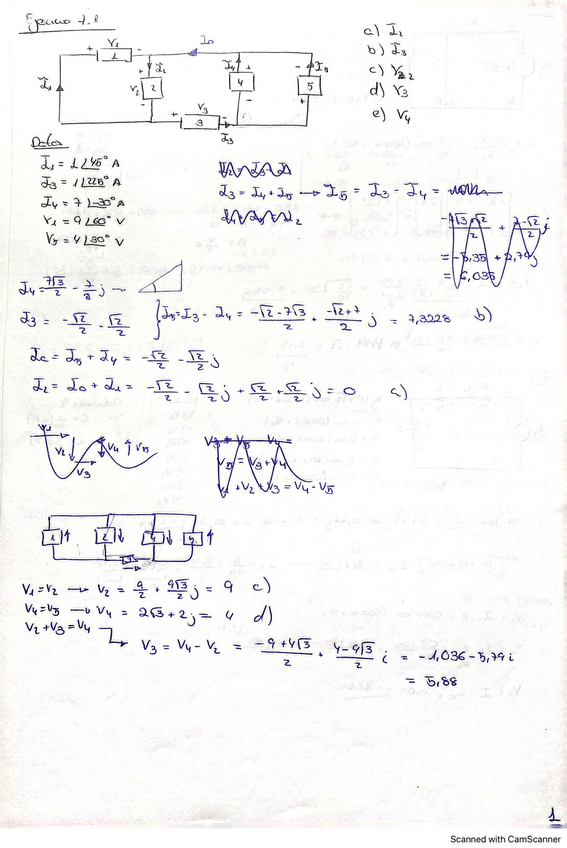 Ejercicio 1.2
a) I₂
b) I₅
c) V₂
d) V₃
e) V₄
+ V₁ -
1
I₀
I₁
+ I₂
V₂ 2
-
I₄ +
4
-
- I₅
5
+
+ V₃ -
3
I₃
Datos
I₁ = 1∠45° A
I₃ = 1∠225° A
I₄ = 7∠-30° A
V₁ = 9∠60° V
V₅ = 4∠30° V
I₃ = I₄ + I₅ → I₅ = I₃ - I₄ =
-7√3-√2/2 + 7-√2/2 j
= -5,35 + 2,79j
= 6,035
I₄ = 7√3/2 - 7/2 j
I₃ = -√2/2 - √2/2
I₅ = I₃ - I₄ = -√2-7√3/2 + -√2+7/2 j = 7,3228 b)
I₀ = I₅ + I₄ = -√2/2 - √2/2 j
I₂ = I₀ + I₁ = -√2/2 - √2/2 j + √2/2 + √2/2 j = 0 a)
V₁
V₂
V₃
V₄
V₅
V₃ + V₅ V₄ =
V₅ = V₃ + V₄
V₁ + V₂ + V₃ = V₄ - V₅
1 2 4 5
3
V₁ = V₂ → V₂ = 9/2 + 9√3/2 j = 9 c)
V₄ = V₅ → V₄ = 2√3 + 2j = 4 d)
V₂ + V₃ = V₄
V₃ = V₄ - V₂ = -9+4√3/2 + 4-9√3/2 i = -1,036 - 5,79 i
= 5,88
1
Scanned with CamScanner